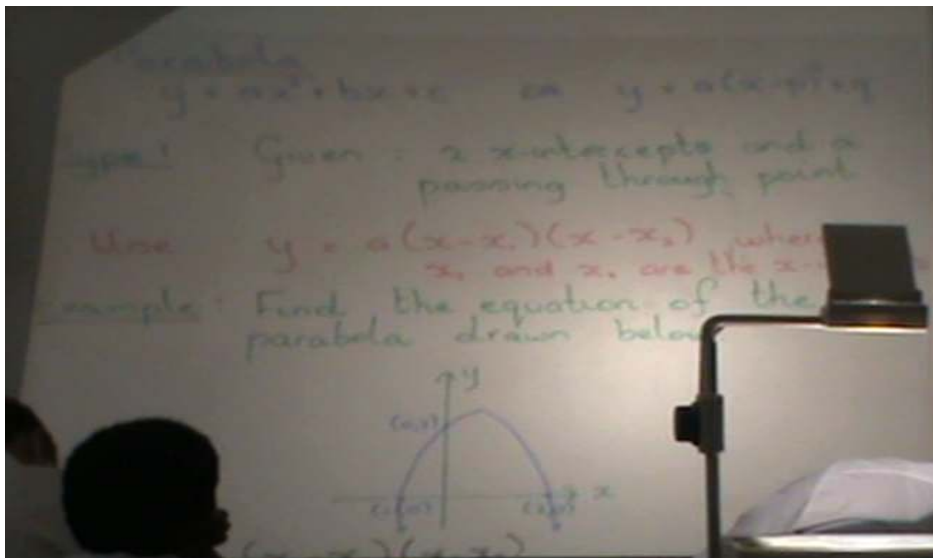 Parabola
y = ax² + bx + c or y = a(x-p)² + q
Type 1 Given : 2 x-intercepts and a
passing through point
Use y = a(x-x₁)(x-x₂) where
x₁ and x₂ are the
Example : Find the equation of the
parabola drawn below
y
x